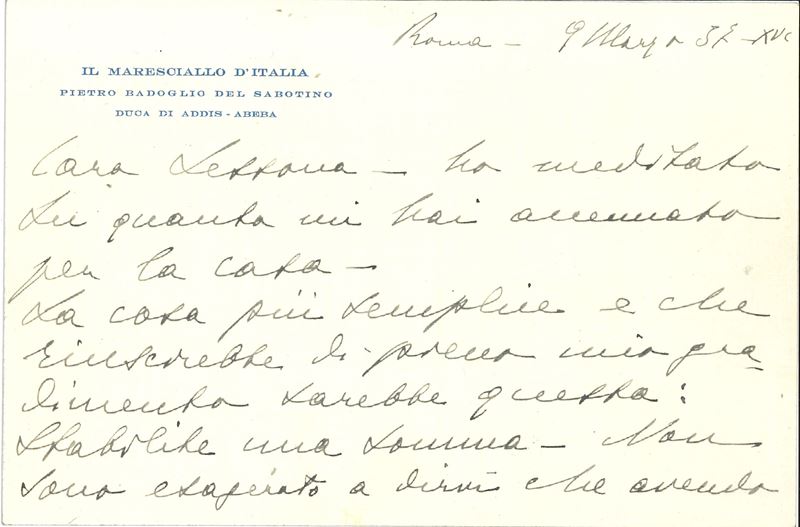 Roma - 9 Marzo 37 - XVº
IL MARESCIALLO D'ITALIA
PIETRO BADOGLIO DEL SABOTINO
DUCA DI ADDIS-ABEBA
Caro Lessona - ho meditato
su quanto mi hai accennato
per la casa -
La cosa più semplice e che
riuscirebbe di pieno mio gra-
dimento sarebbe questa:
Stabilite una somma - Non
sono esagerato a dirvi che avendo